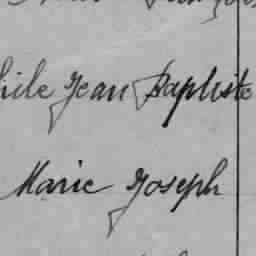 hile Jean Baptiste
Marie Joseph